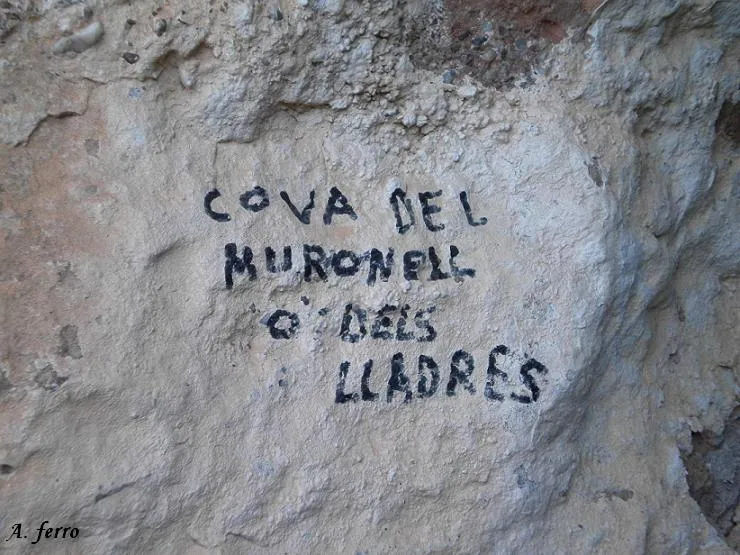 COVA DEL
MURONELL
O DELS
LLADRES
A. ferro